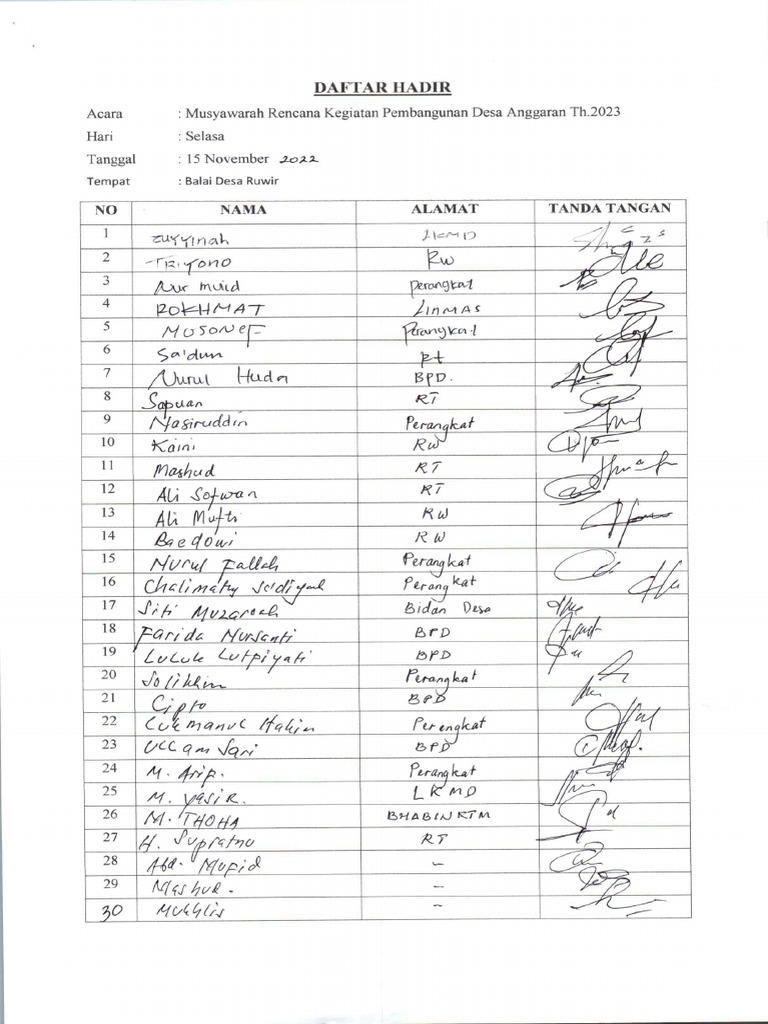 DAFTAR HADIR
Acara : Musyawarah Rencana Kegiatan Pembangunan Desa Anggaran Th.2023
Hari : Selasa
Tanggal : 15 November 2022
Tempat : Balai Desa Ruwir
NO NAMA ALAMAT TANDA TANGAN
1 Zuyyinah LKMD
2 TRIYONO RW
3 Nur muid Perangkat
4 ROKHMAT LINMAS
5 MUSONEF Perangkat
6 Sa'dun Rt
7 Nurul Huda BPD.
8 Sapuan RT
9 Nasiruddin Perangkat
10 Kaini RW
11 Mashud RT
12 Ali Sofwan RT
13 Ali Mufti RW
14 Baedowi RW
15 Nurul Fallah Perangkat
16 Chalimatus Sa'diyah Perangkat
17 Siti Muzaroah Bidan Desa
18 Farida Nursanti BPD
19 Luluk Lutpiyati BPD
20 Solikhin Perangkat
21 Cipto BPD
22 Lukmanul Hakim Perengkat
23 Ullam Sari BPD
24 M. Arip. Perangkat
25 M. Yasir. LKMD
26 M. THOHA BHABINKTM
27 H. Supratno RT
28 Abd. Mufid -
29 Mashur. -
30 Mukhlis -